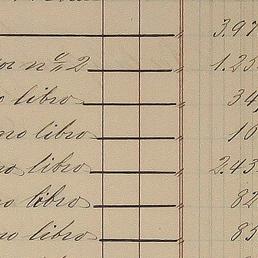 3.97
or nº 2 " 1.23
o libro " 34
mo libro " 10
no libro " 2.43
no libro " 82
no libro " 85